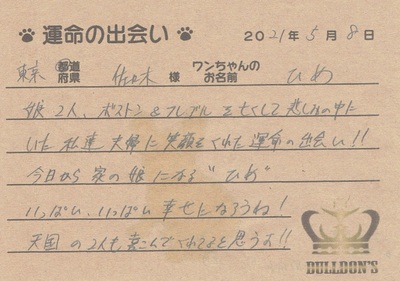 運命の出会い 2021年5月8日
東京 都道府県 佐々木 様 ワンちゃんのお名前 ひめ
娘2人、ボストン&フレブルを亡くして悲しみの中に
いた私達夫婦に笑顔をくれた運命の出会い!!
今日から家の娘になる"ひめ"
いっぱい、いっぱい幸せになろうね!
天国の2人も喜こんでくれてると思うよ!!
BULLDON'S